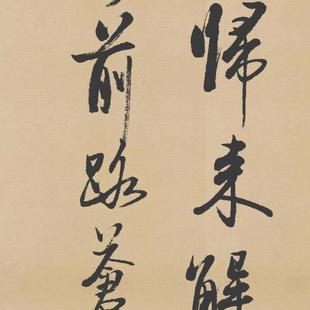 歸来解
前路蒼